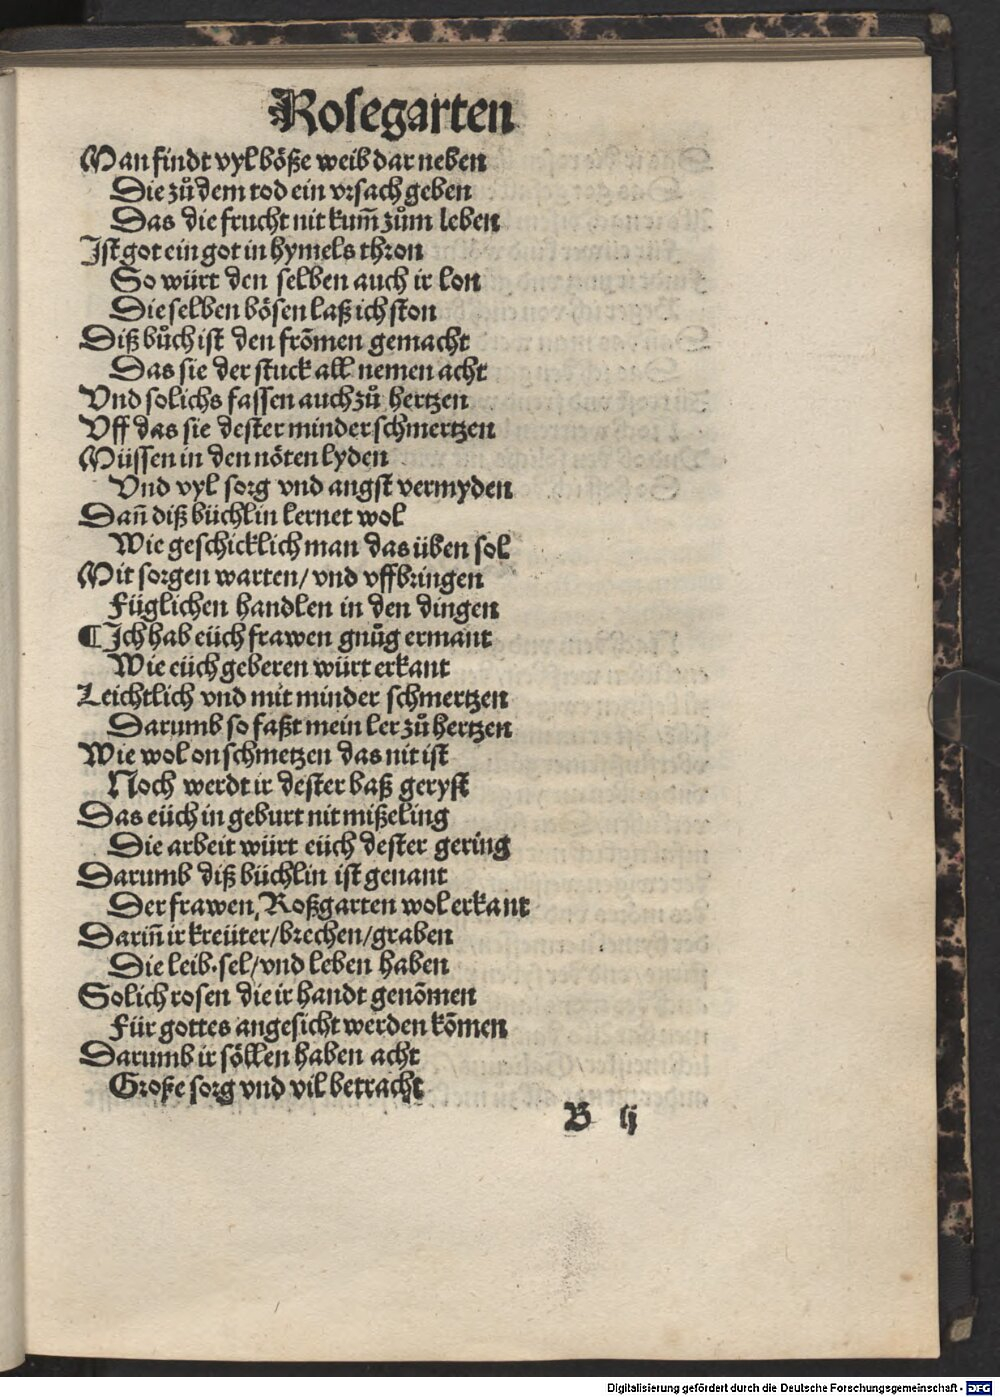 Rosegarten
Man findt vyl böße weib dar neben
Die zů dem tod ein vrsach geben
Das die frucht nit kum̃ zům leben
Ist got ein got in hymels thron
So würt den selben auch ir lon
Die selben bösen laß ich ston
Diß bůch ist den frõmen gemacht
Das sie der stuck all nemen acht
Vnd solichs fassen auch zů hertzen
Vff das sie dester minder schmertzen
Müssen in den nöten lyden
Vnd vyl sorg vnd angst vermyden
Dañ diß büchlin lernet wol
Wie geschicklich man das üben sol
Mit sorgen warten/ vnd vffbringen
Füglichen handlen in den dingen
¶ Ich hab eüch frawen gnůg ermant
Wie eüch geberen würt erkant
Leichtlich vnd mit minder schmertzen
Darumb so faßt mein ler zů hertzen
Wie wol on schmetzen das nit ist
Noch werdt ir dester baß geryst
Das eüch in geburt nit mißeling
Die arbeit würt eüch dester gering
Darumb diß büchlin ist genant
Der frawen, Roßgarten wol erkant
Dariñ ir kreüter/brechen/graben
Die leib.sel/vnd leben haben
Solich rosen die ir handt genõmen
Für gottes angesicht werden kõmen
Darumb ir söllen haben acht
Große sorg vnd vil betracht
B ij
Digitalisierung gefördert durch die Deutsche Forschungsgemeinschaft - DFG